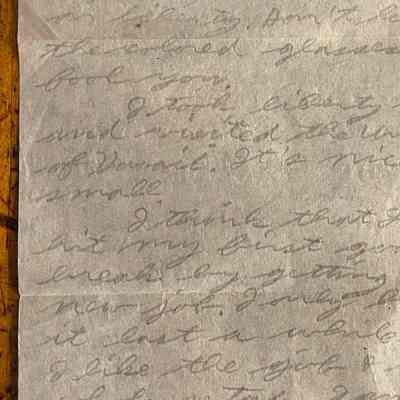 on liberty. Don't le
the colored glasses
fool you.
I took liberty
and visited the
of Vassil. It's nice
small
I think that I
hit my first goo
break by getting
new job. I only h
it last a while
I like the job &